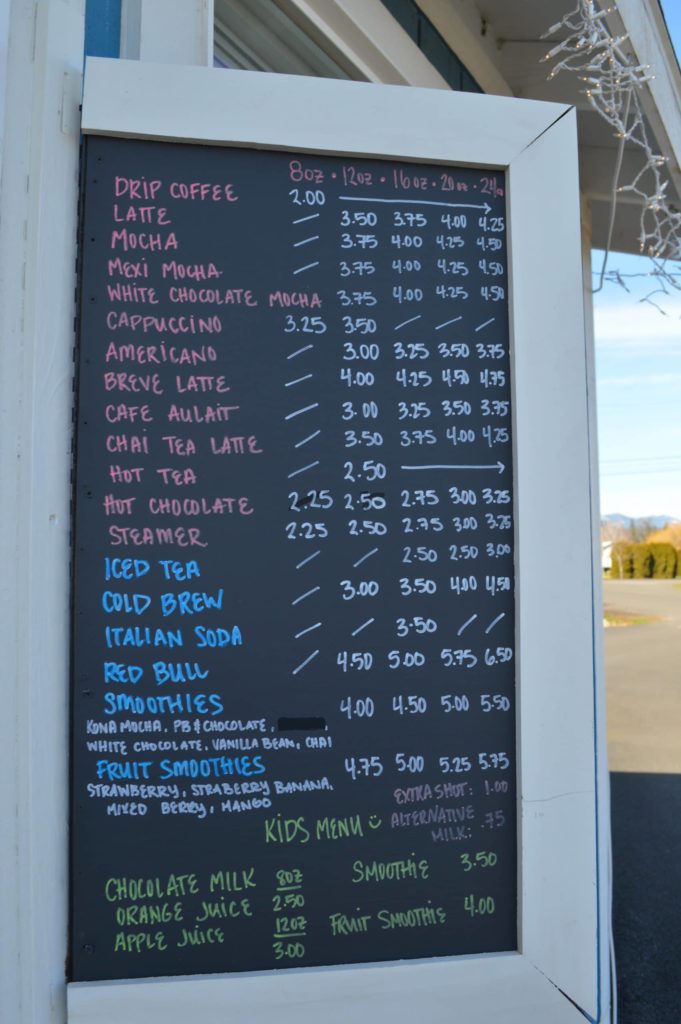 8oz • 12oz • 16oz • 20oz • 24oz
DRIP COFFEE 2.00
LATTE / 3.50 3.75 4.00 4.25
MOCHA / 3.75 4.00 4.25 4.50
MEXI MOCHA / 3.75 4.00 4.25 4.50
WHITE CHOCOLATE MOCHA 3.75 4.00 4.25 4.50
CAPPUCCINO 3.25 3.50 / / /
AMERICANO / 3.00 3.25 3.50 3.75
BREVE LATTE / 4.00 4.25 4.50 4.75
CAFE AULAIT / 3.00 3.25 3.50 3.75
CHAI TEA LATTE / 3.50 3.75 4.00 4.25
HOT TEA / 2.50
HOT CHOCOLATE 2.25 2.50 2.75 3.00 3.25
STEAMER 2.25 2.50 2.75 3.00 3.25
ICED TEA / / 2.50 2.50 3.00
COLD BREW / 3.00 3.50 4.00 4.50
ITALIAN SODA / / 3.50 / /
RED BULL / 4.50 5.00 5.75 6.50
SMOOTHIES 4.00 4.50 5.00 5.50
KONA MOCHA, PB & CHOCOLATE,
WHITE CHOCOLATE, VANILLA BEAN, CHAI
FRUIT SMOOTHIES 4.75 5.00 5.25 5.75
STRAWBERRY, STRABERRY BANANA,
MIXED BERRY, MANGO
EXTRA SHOT: 1.00
ALTERNATIVE
MILK: .75
KIDS MENU
CHOCOLATE MILK 8oz
ORANGE JUICE 2.50
APPLE JUICE 12OZ
3.00
SMOOTHIE 3.50
FRUIT SMOOTHIE 4.00